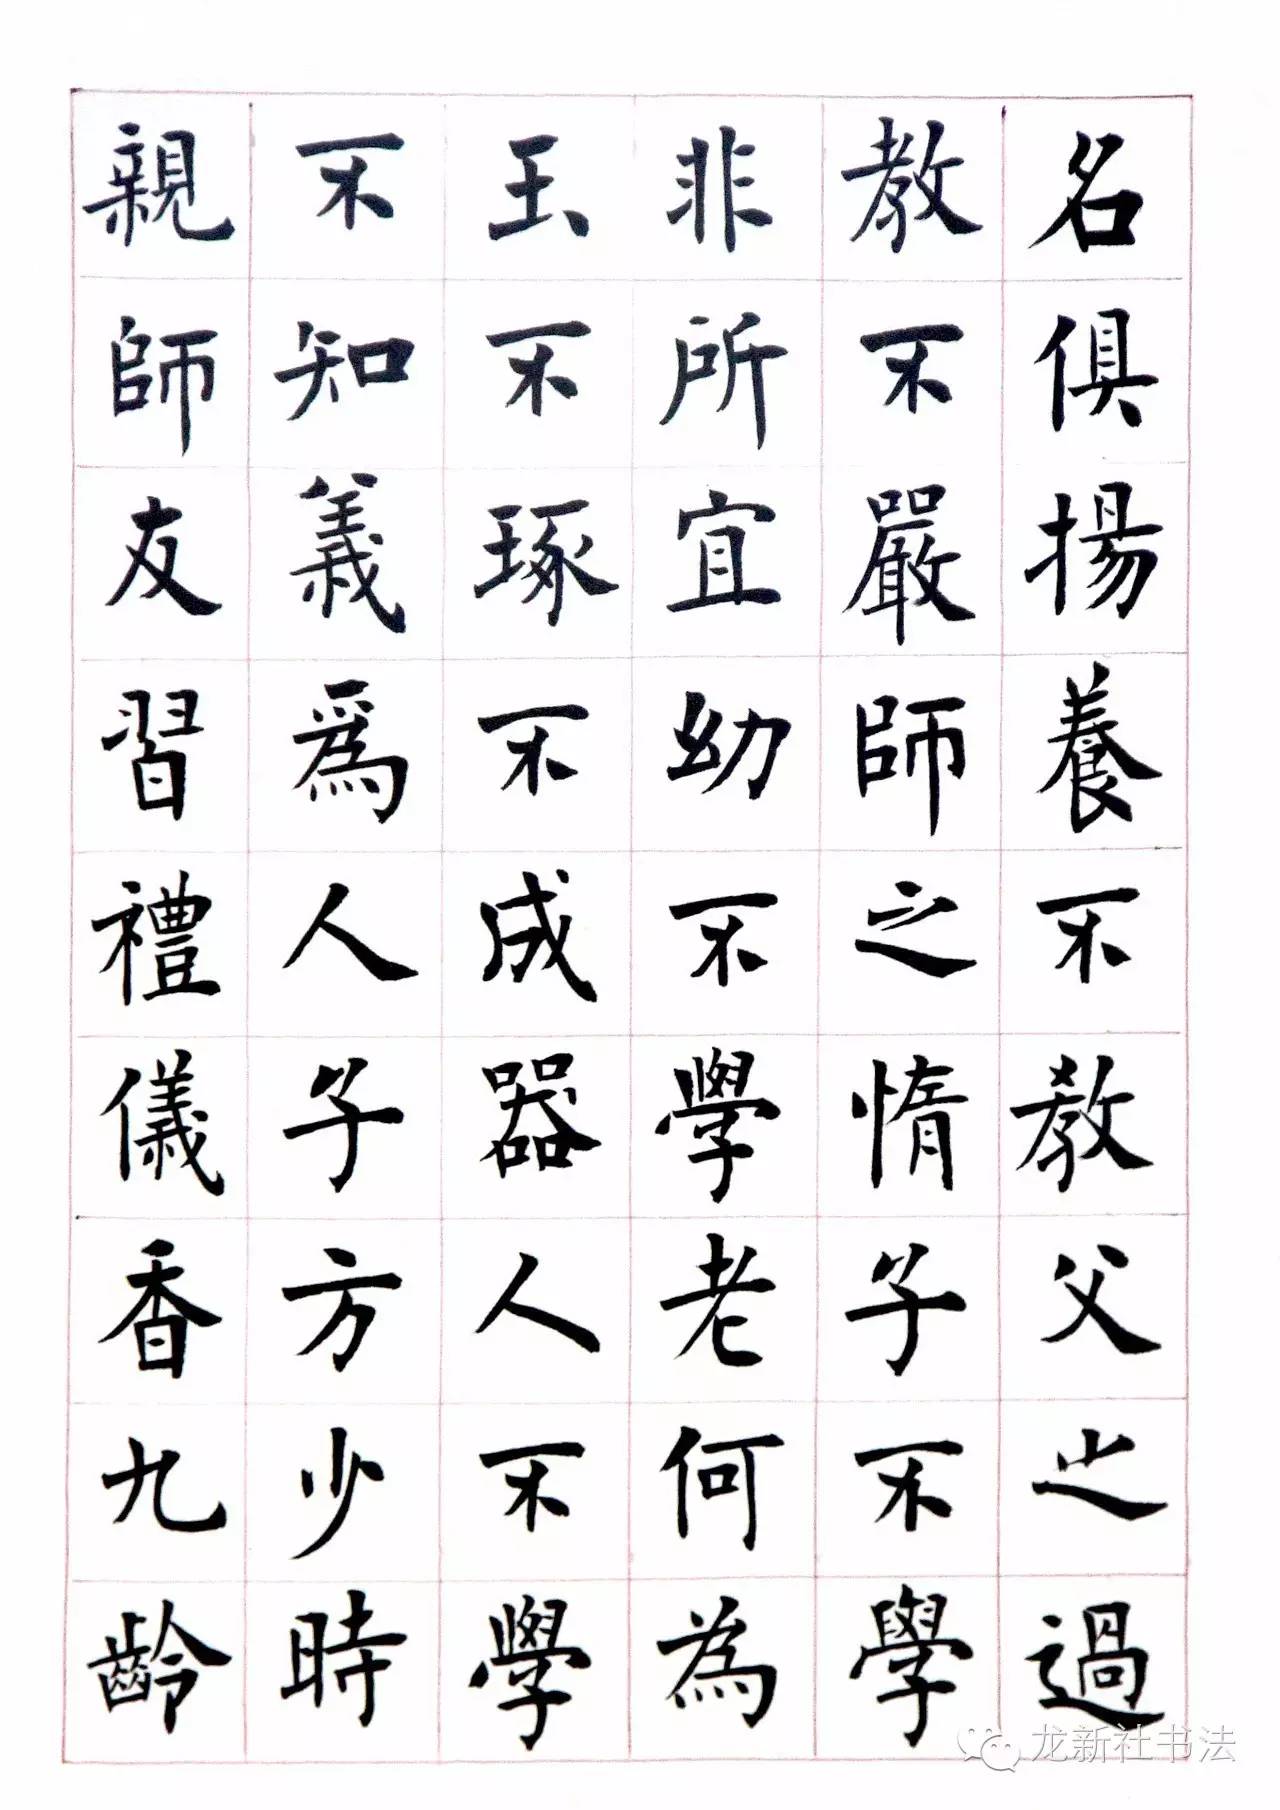 名俱揚養不教父之過
教不嚴師之惰子不學
非所宜幼不學老何為
玉不琢不成器人不學
不知義爲人子方少時
親師友習禮儀香九齡
龙新社书法